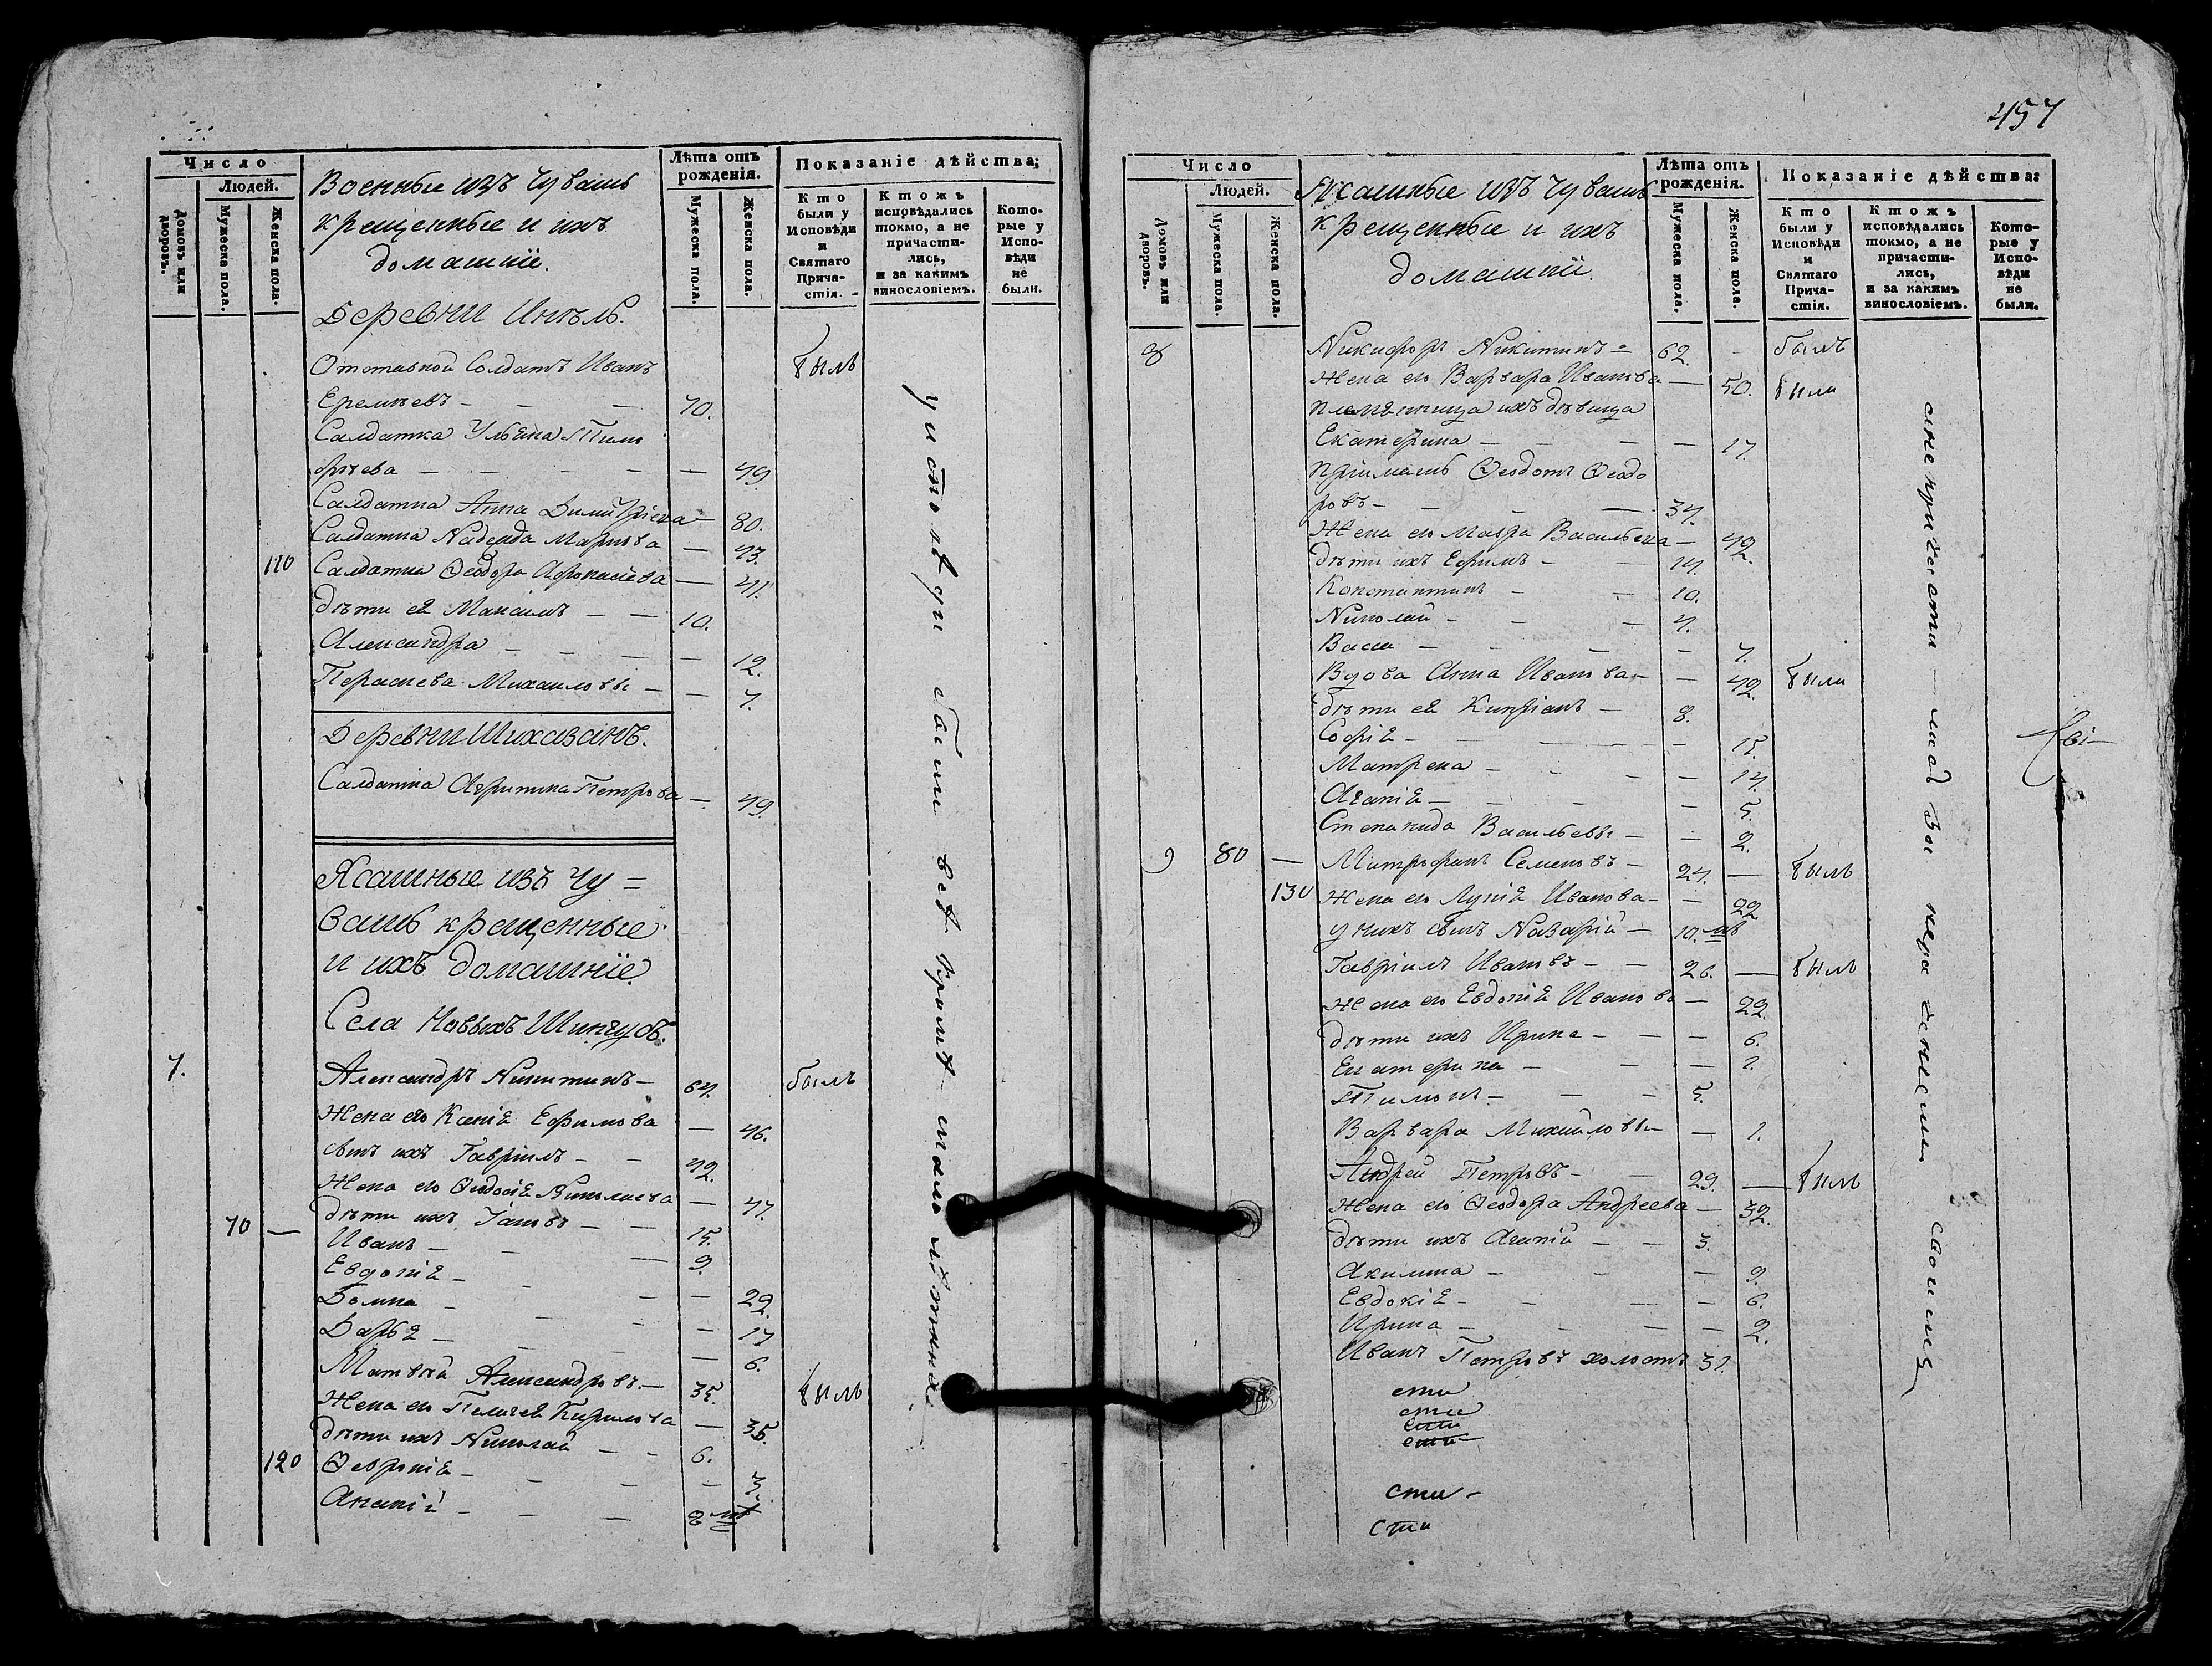 Число
Людей.
Домовъ или дворовъ.
Мужеска пола.
Женска пола.
Военные изъ Чувашъ
крещенные и ихъ
домашнїи.
Лѣта отъ рожденія.
Мужеска пола.
Женска пола.
Показаніе дѣйства;
Кто были у Исповѣди и Святаго Прича-стія.
Ктожъ исповѣдались токмо, а не причасти-лись, и за какимъ винословіемъ.
Кото-рые у Испо-вѣди не были.
Деревни
Отставной Солдатъ Иванъ былъ
Еремѣевъ - - - 70.
Салдатка Ульяна
— 49.
Салдатка Анна Димитріева — 80.
Салдатка Надежда Маркова — 43.
110 Салдатка Ѳеодора — 41.
Дѣти ея Максимъ — — 10.
Александра - - — — 12.
Параскева Михаиловы — — 7.
Деревни Шихазанъ.
Салдатка Петрова — 49.
Ясашные изъ Чу=
вашъ крещенные
и ихъ домашніе
Села Новыхъ
7. Александръ Никитинъ — 64. былъ
Жена его Ксенія Ефимова — 46.
сынъ ихъ Гавріилъ - — 42.
Жена его Ѳеодосія Николаева — 47.
70 — Дѣти ихъ Іаковъ — — 15.
Иванъ — - — 9.
Евдокія — - — — 22.
Домна — - — 17
Дарья — - — 6.
Матвѣй Александровъ — 35. былъ
Жена его Пелагея Кирилова — 35.
дѣти ихъ Николай — - 6.
120 Ѳевронія — - — - 3.
Ананій — - — 8 мѣ
у исповѣди были всѣ кромѣ малолѣтныхъ
457
Число
Людей.
Домовъ или дворовъ.
Мужеска пола.
Женска пола.
Ясашные изъ Чувашъ
крещенные и ихъ
домашнїи.
Лѣта отъ рожденія.
Мужеска пола.
Женска пола.
Показаніе дѣйства:
Кто были у Исповѣди и Святаго Прича-стія.
Ктожъ исповѣдались токмо, а не причасти-лись, и за какимъ винословіемъ.
Кото-рые у Испо-вѣди не были.
8 Никифоръ Никитинъ = 62. - былъ
Жена его Варвара Иванова — 50. были
племянница ихъ дѣвица
Екатерина — - — — 17.
пріимышъ Ѳеодотъ Ѳеодо
ровъ — - — 34.
Жена его Мавра Васильева — 42.
Дѣти ихъ Ефимъ — - 14.
Константинъ - - 10.
Николай - - — 4.
Васса — - — - 7.
Вдова Анна Иванова — — 42. были
дѣти ея Кипріанъ — 8.
Софія — — - 15.
Матрена — - — — 14.
Агапія — - - — 5.
Степанида Васильевы — — 2.
9 80 — Митрофанъ Семеновъ — 24. — былъ
130 Жена его Лукія Иванова — — 22
у нихъ сынъ Назарій — 10. мѣ
Гавріилъ Ивановъ — — 26. — былъ
Жена его Евдокія Иванова — 22.
дѣти ихъ Ирина — — — 6.
Екатерина — — — 1.
Тимонъ — — - 5.
Варвара Михаиловы — — 1.
Андрей Петровъ — — 29. — былъ
Жена его Ѳеодора Андреева — 32.
дѣти ихъ Агапій — — 3.
Акилина — — — 9.
Евдокія — - — — 6.
Ирина — - — — 2.
Иванъ Петровъ холостъ 31.
сти
сти
сти
сти
сти -
сти